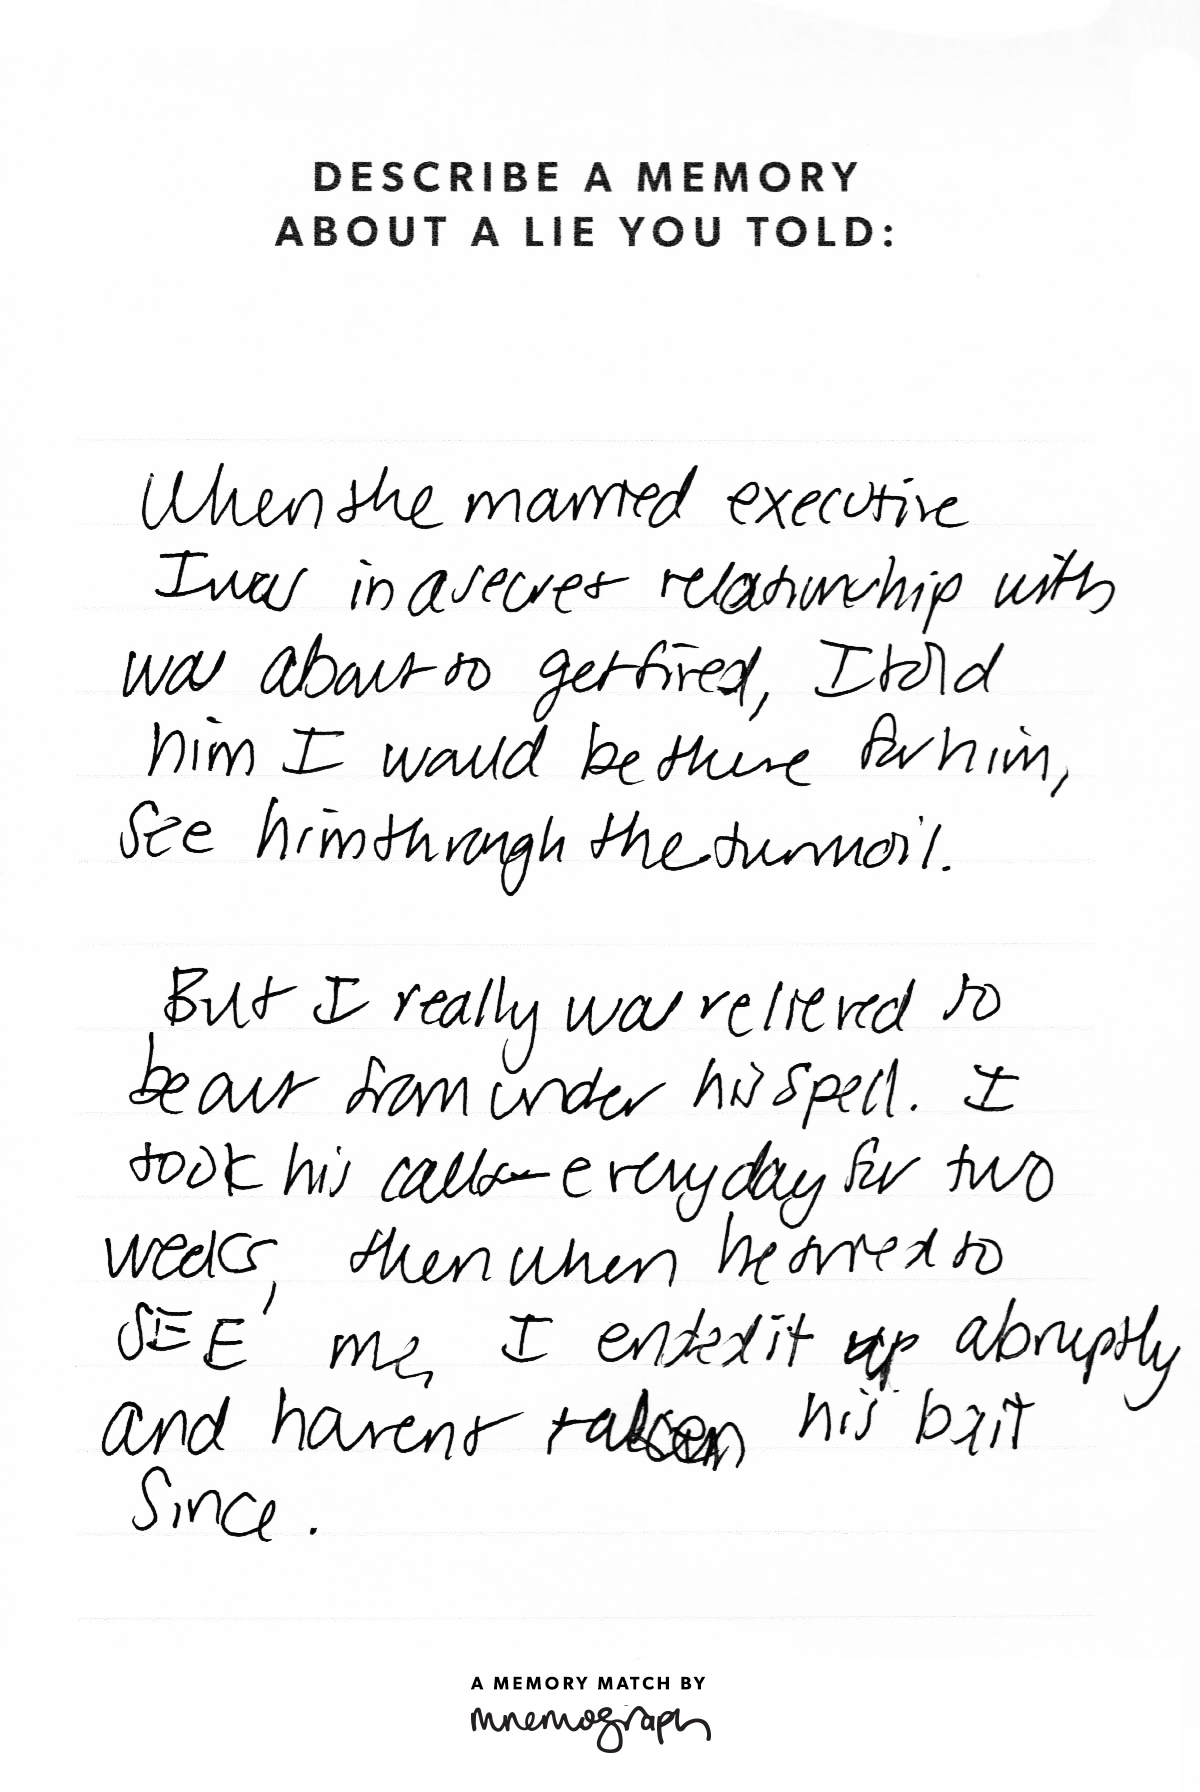 DESCRIBE A MEMORY
ABOUT A LIE YOU TOLD:
When the married executive
I was in a secret relationship with
was about to get fired, I told
him I would be there for him,
See him through the turmoil.
But I really was relieved to
be out from under his spell. I
took his calls everyday for two
weeks, then when he tried to
SEE me, I ended it up abruptly
and havent taken his bait
Since.
A MEMORY MATCH BY
mnemograph